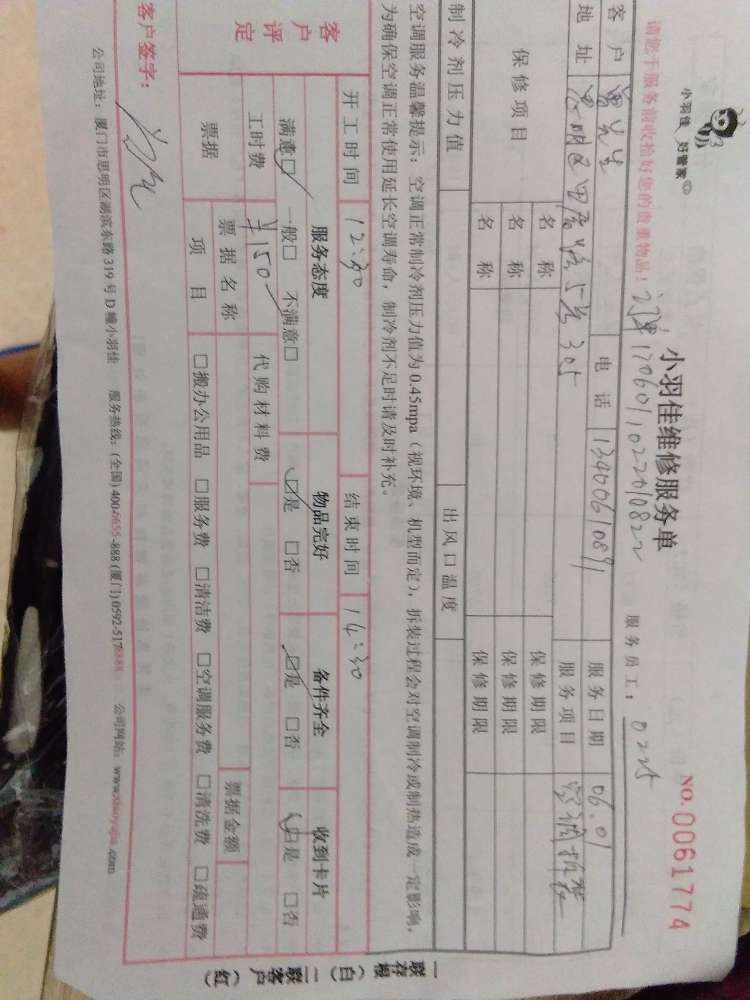 小羽佳 好管家
小羽佳维修服务单
NO.0061774
请您于服务前收拾好您的贵重物品！
1706011022010822
服务员工： 0225
客户 先生 电话 13400610891 服务日期 06.01
地址 思明区 5 305 服务项目 空调拆装
保修项目 名称 保修期限
名称 保修期限
名称 保修期限
制冷剂压力值 出风口温度
空调服务温馨提示：空调正常制冷剂压力值为0.45mpa（视环境、机型而定），拆装过程会对空调制冷或制热造成一定影响，
为确保空调正常使用延长空调寿命，制冷剂不足时请及时补充。
开工时间 12:30 结束时间 14:30
客户评定 服务态度 物品完好 备件齐全 收到卡片
满意□ 一般□ 不满意□ □是 □否 □是 □否 □是 □否
工时费 ¥150 代购材料费
票据 票据名称 票据金额
项目 □搬办公用品 □服务费 □清洁费 □空调服务费 □清洗费 □疏通费
客户签字：
公司地址：厦门市思明区湖滨东路319号D幢小羽佳 服务热线：(全国)400-6655-888 (厦门)0592-5178888 公司网站：www.xiaoyujia.com
一联存根（白）二联客户（红）